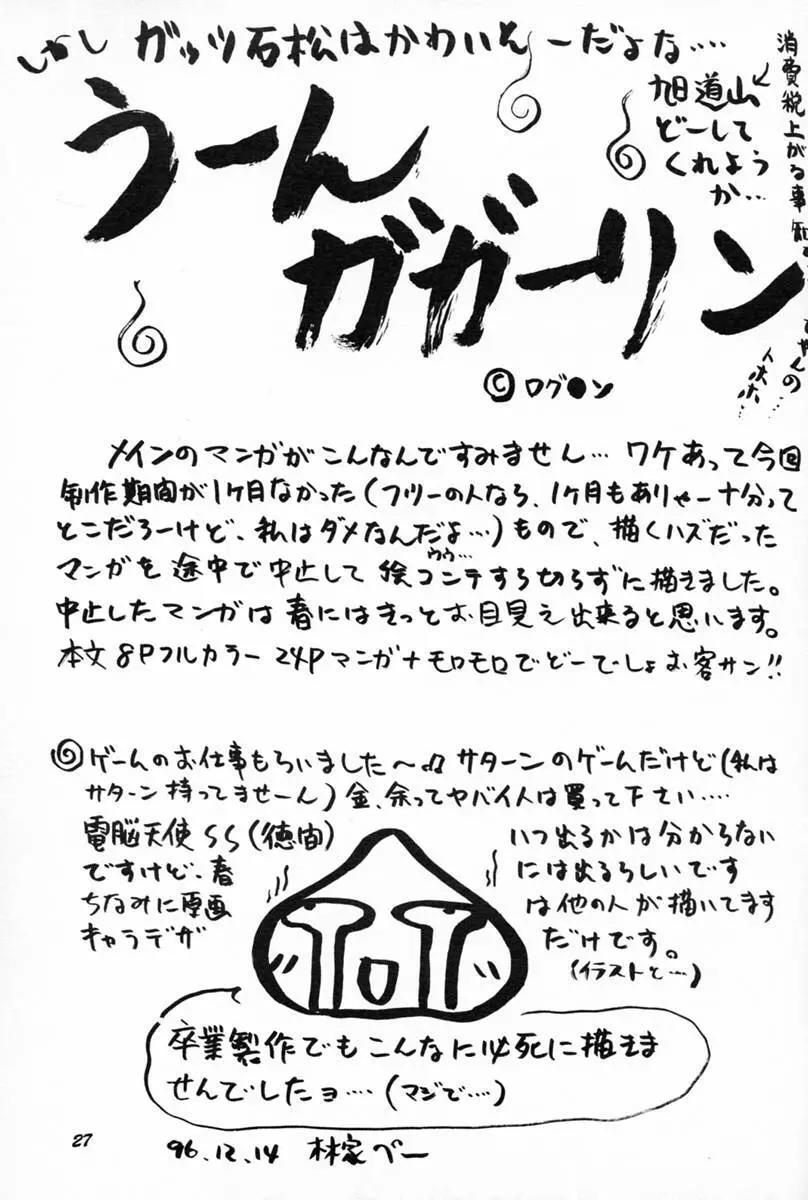 しかし ガッツ石松はかわいそーだよな‥‥
消費税上がる事
旭道山
どーして
くれよう
か…
うーん
ガガーリン
©ログ●ン
メインのマンガがこんなんですみません… ワケあって今回
制作期間が1ヶ月なかった(フツーの人なら、1ヶ月もありゃー十分って
とこだろーけど、私はダメなんだよ…)もので、描くハズだった
マンガを途中で中止して絵コンテすら切らずに描きました。
ウウ…
中止したマンガは春にはきっとお目見え出来ると思います。
本文8Pフルカラー24Pマンガ+モロモロでどーでしょお客サン!!
ゲームのお仕事もらいました〜♫ サターンのゲームだけど(私は
サターン持ってませーん)金、余ってヤバイ人は買って下さい‥‥
電脳天使SS(徳間) いつ出るかは分からない
ですけど、春 には出るらしいです
ちなみに原画 は他の人が描いてます
キャラデザ だけです。
(イラストと…)
卒業製作でもこんなに必死に描きま
せんでしたョ…(マジで…)
27
96.12.14 林家ペー